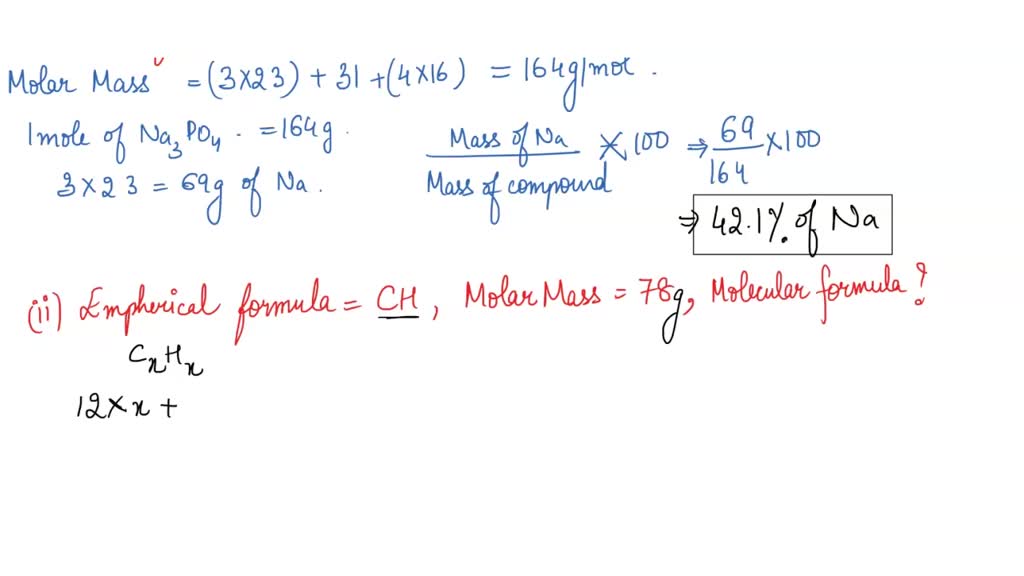 Molar Mass = (3×23) + 31 + (4×16) = 164g/mol.
1mole of Na₃PO₄. = 164g.
3×23 = 69g of Na.
Mass of Na / Mass of compound × 100 ⇒ 69/164 × 100
⇒ 42.1% of Na
(ii) Empherical formula = CH, Molar Mass = 78g, Molecular formula?
CₓHₓ
12×x +